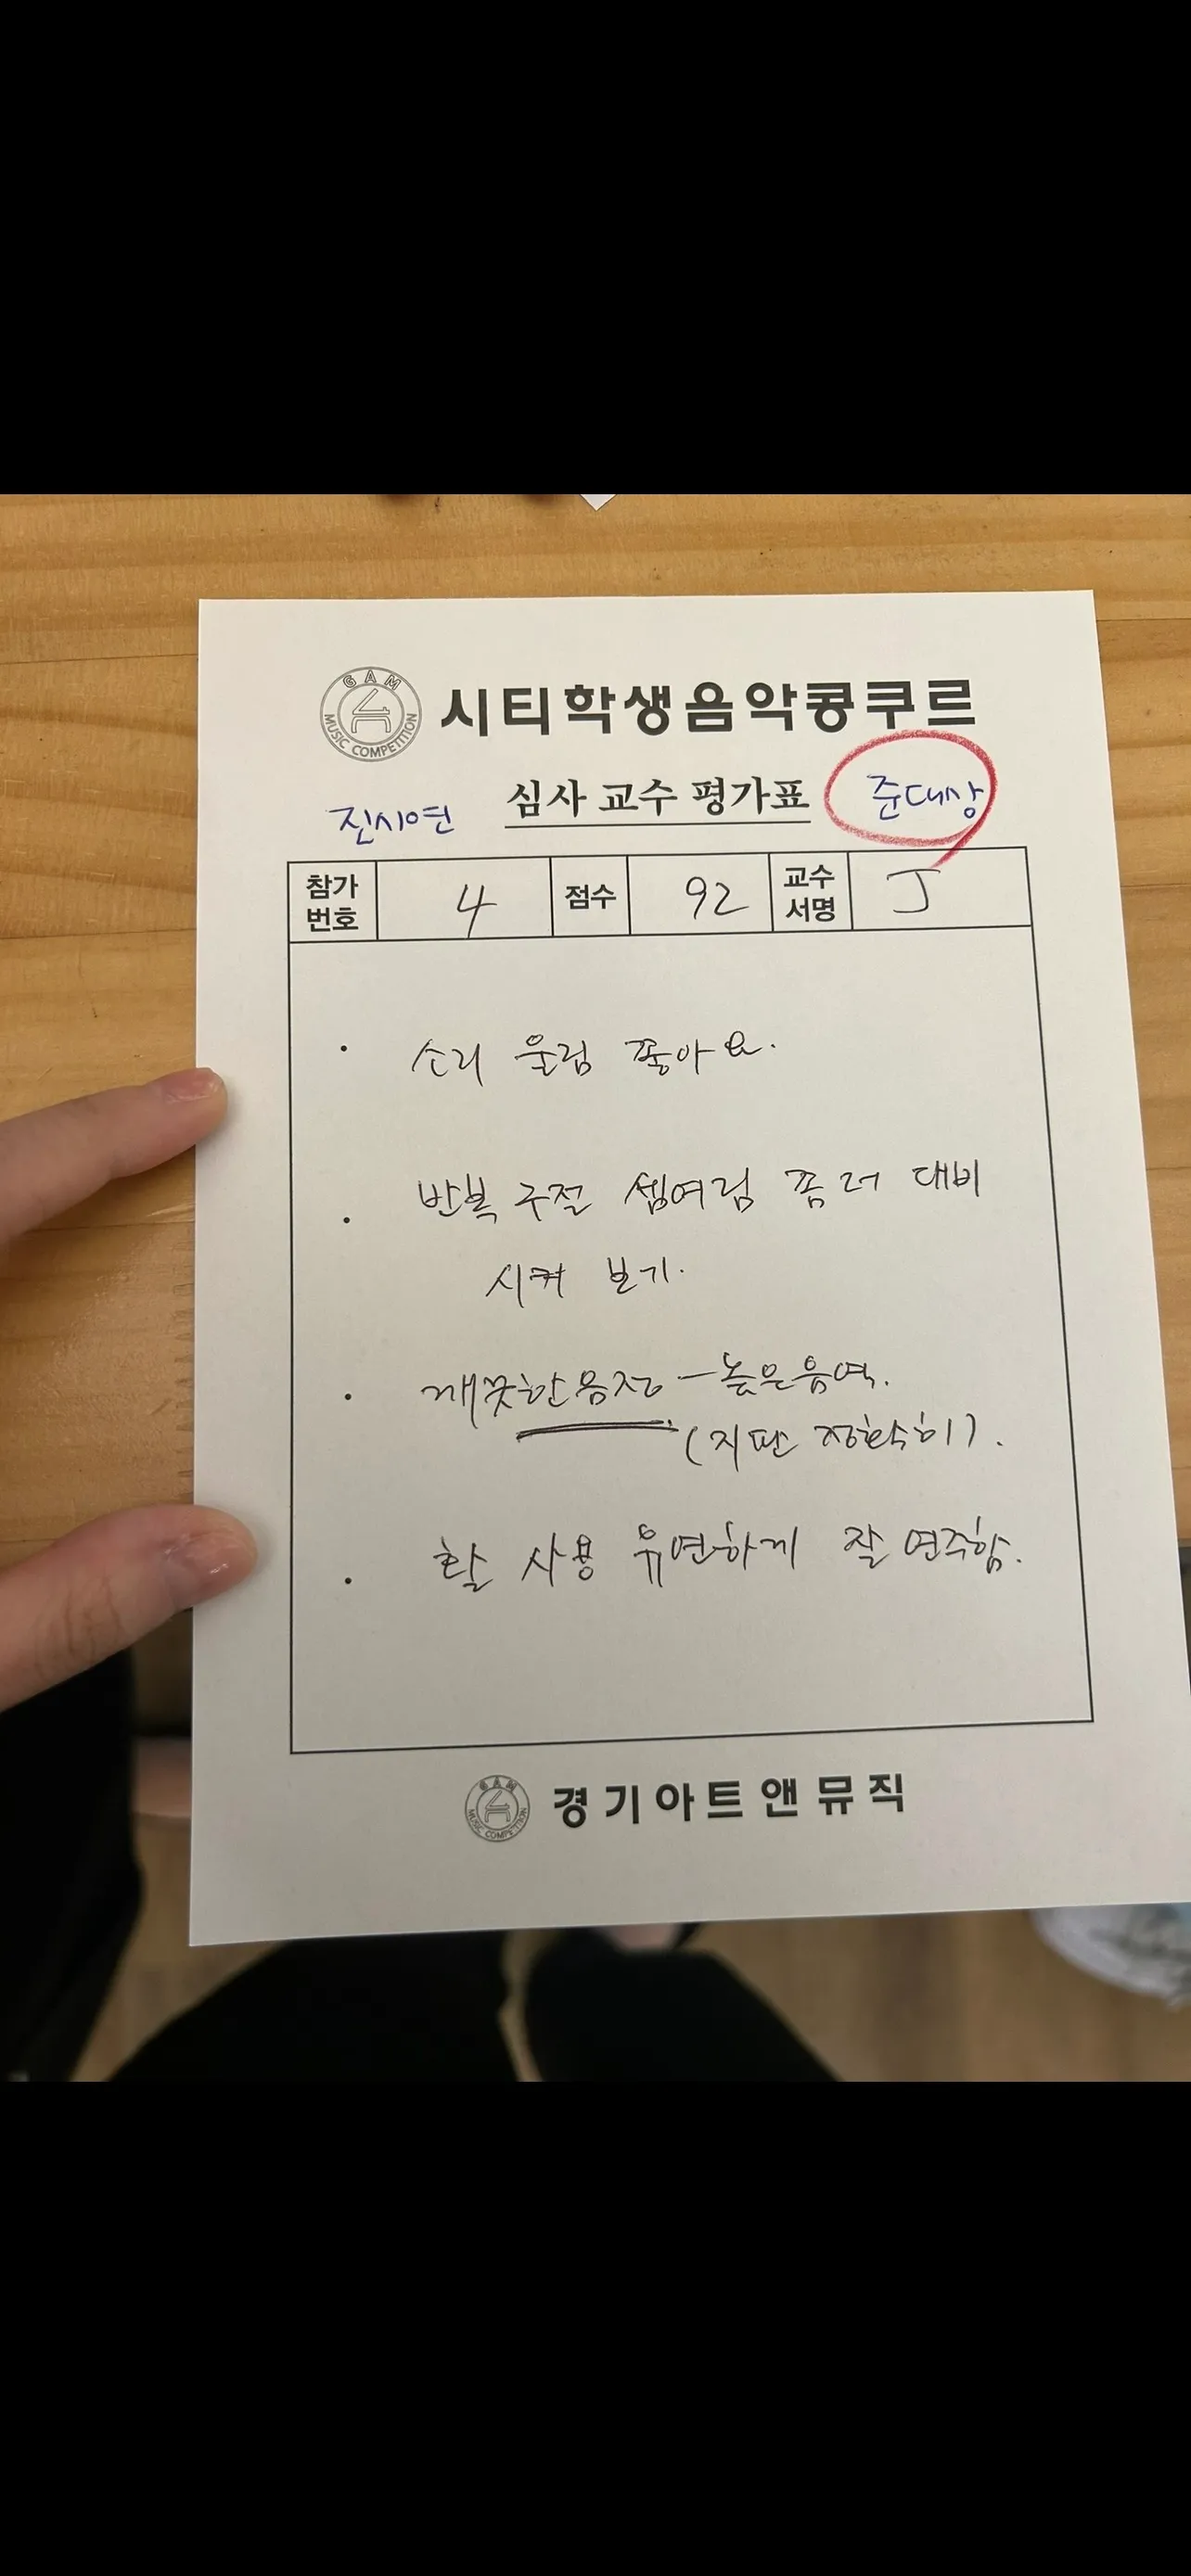 GAM
MUSIC COMPETITION
시티학생음악콩쿠르
심사 교수 평가표
준대상
진시연
참가 번호 4 점수 92 교수 서명 J
· 소리 울림 좋아요.
· 반복 구절 셈여림 좀 더 대비
시켜 보기.
· 깨끗한 음정 - 높은음역.
(지판 정확히).
· 활 사용 유연하게 잘 연주함.
GAM
MUSIC COMPETITION
경기아트앤뮤직